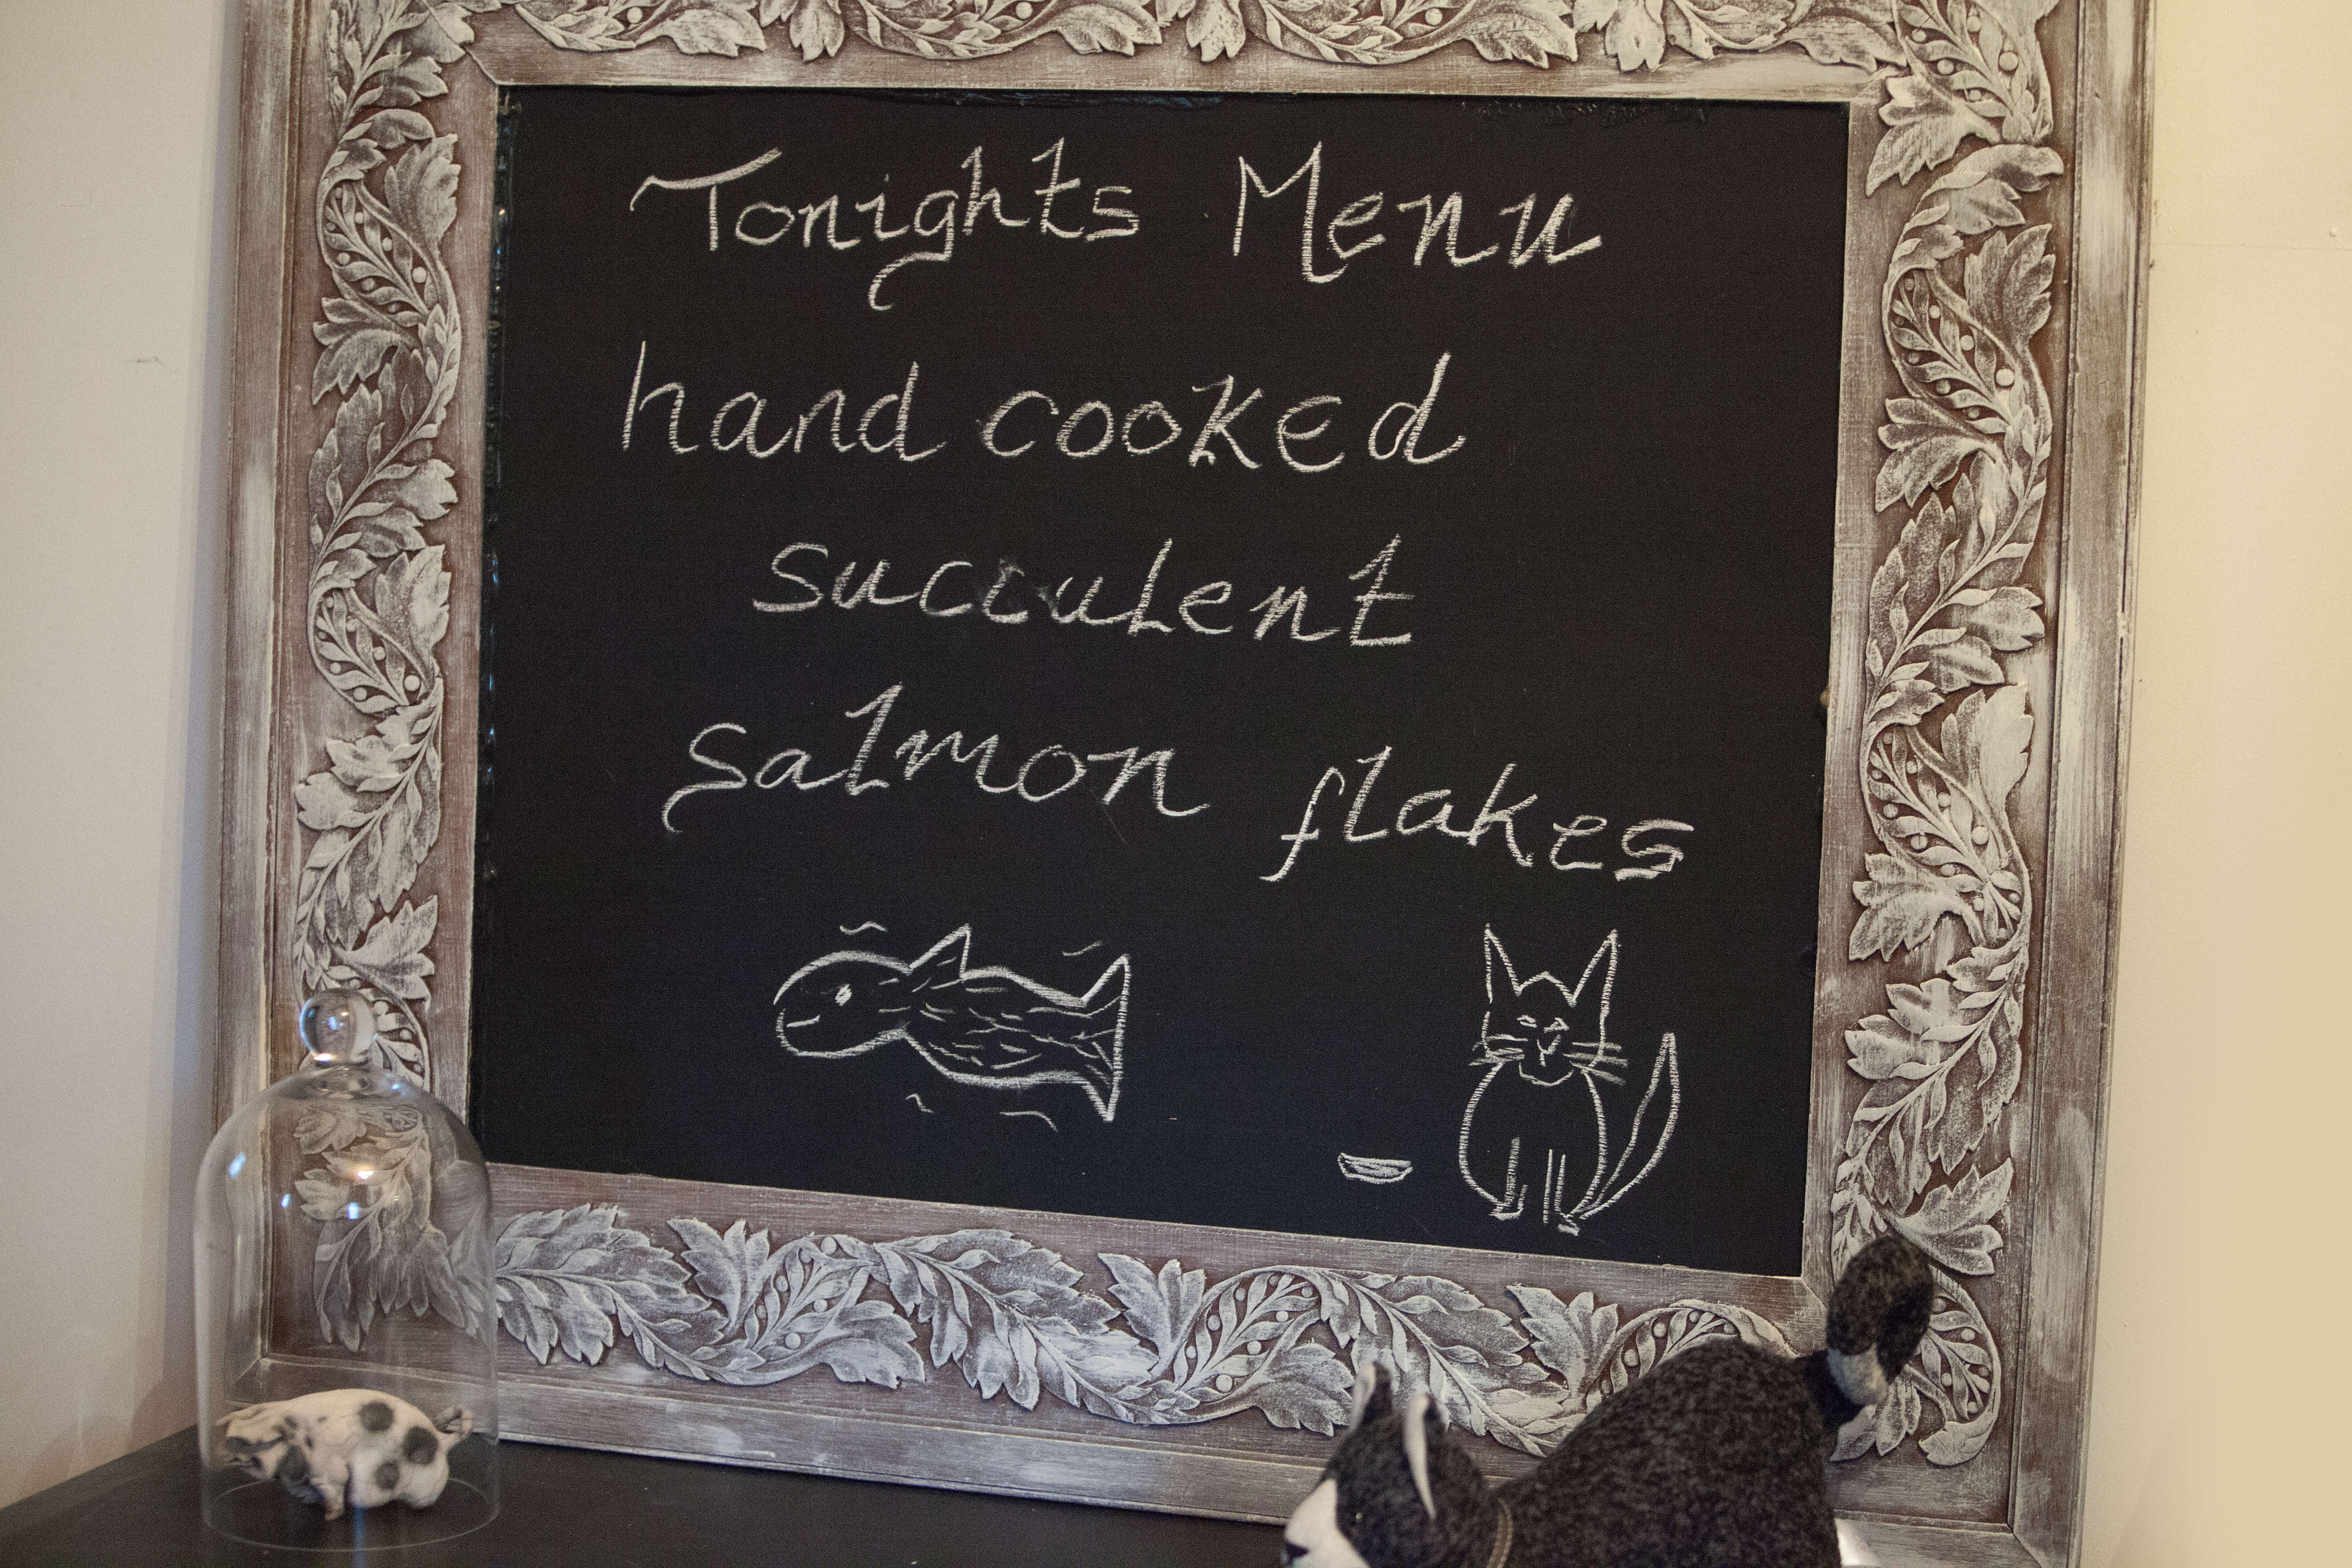 Tonights Menu
hand cooked
succulent
salmon flakes